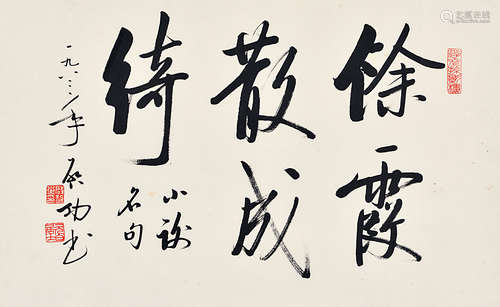 餘霞
散成
綺
小謝
名句
一九八三年
啟功書